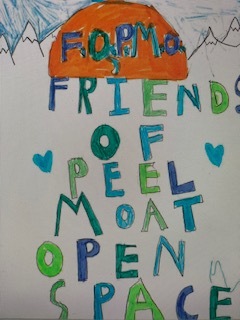 F.O.P.M.O.S
FRIENDS
OF
PEEL
MOAT
OPEN
SPACE